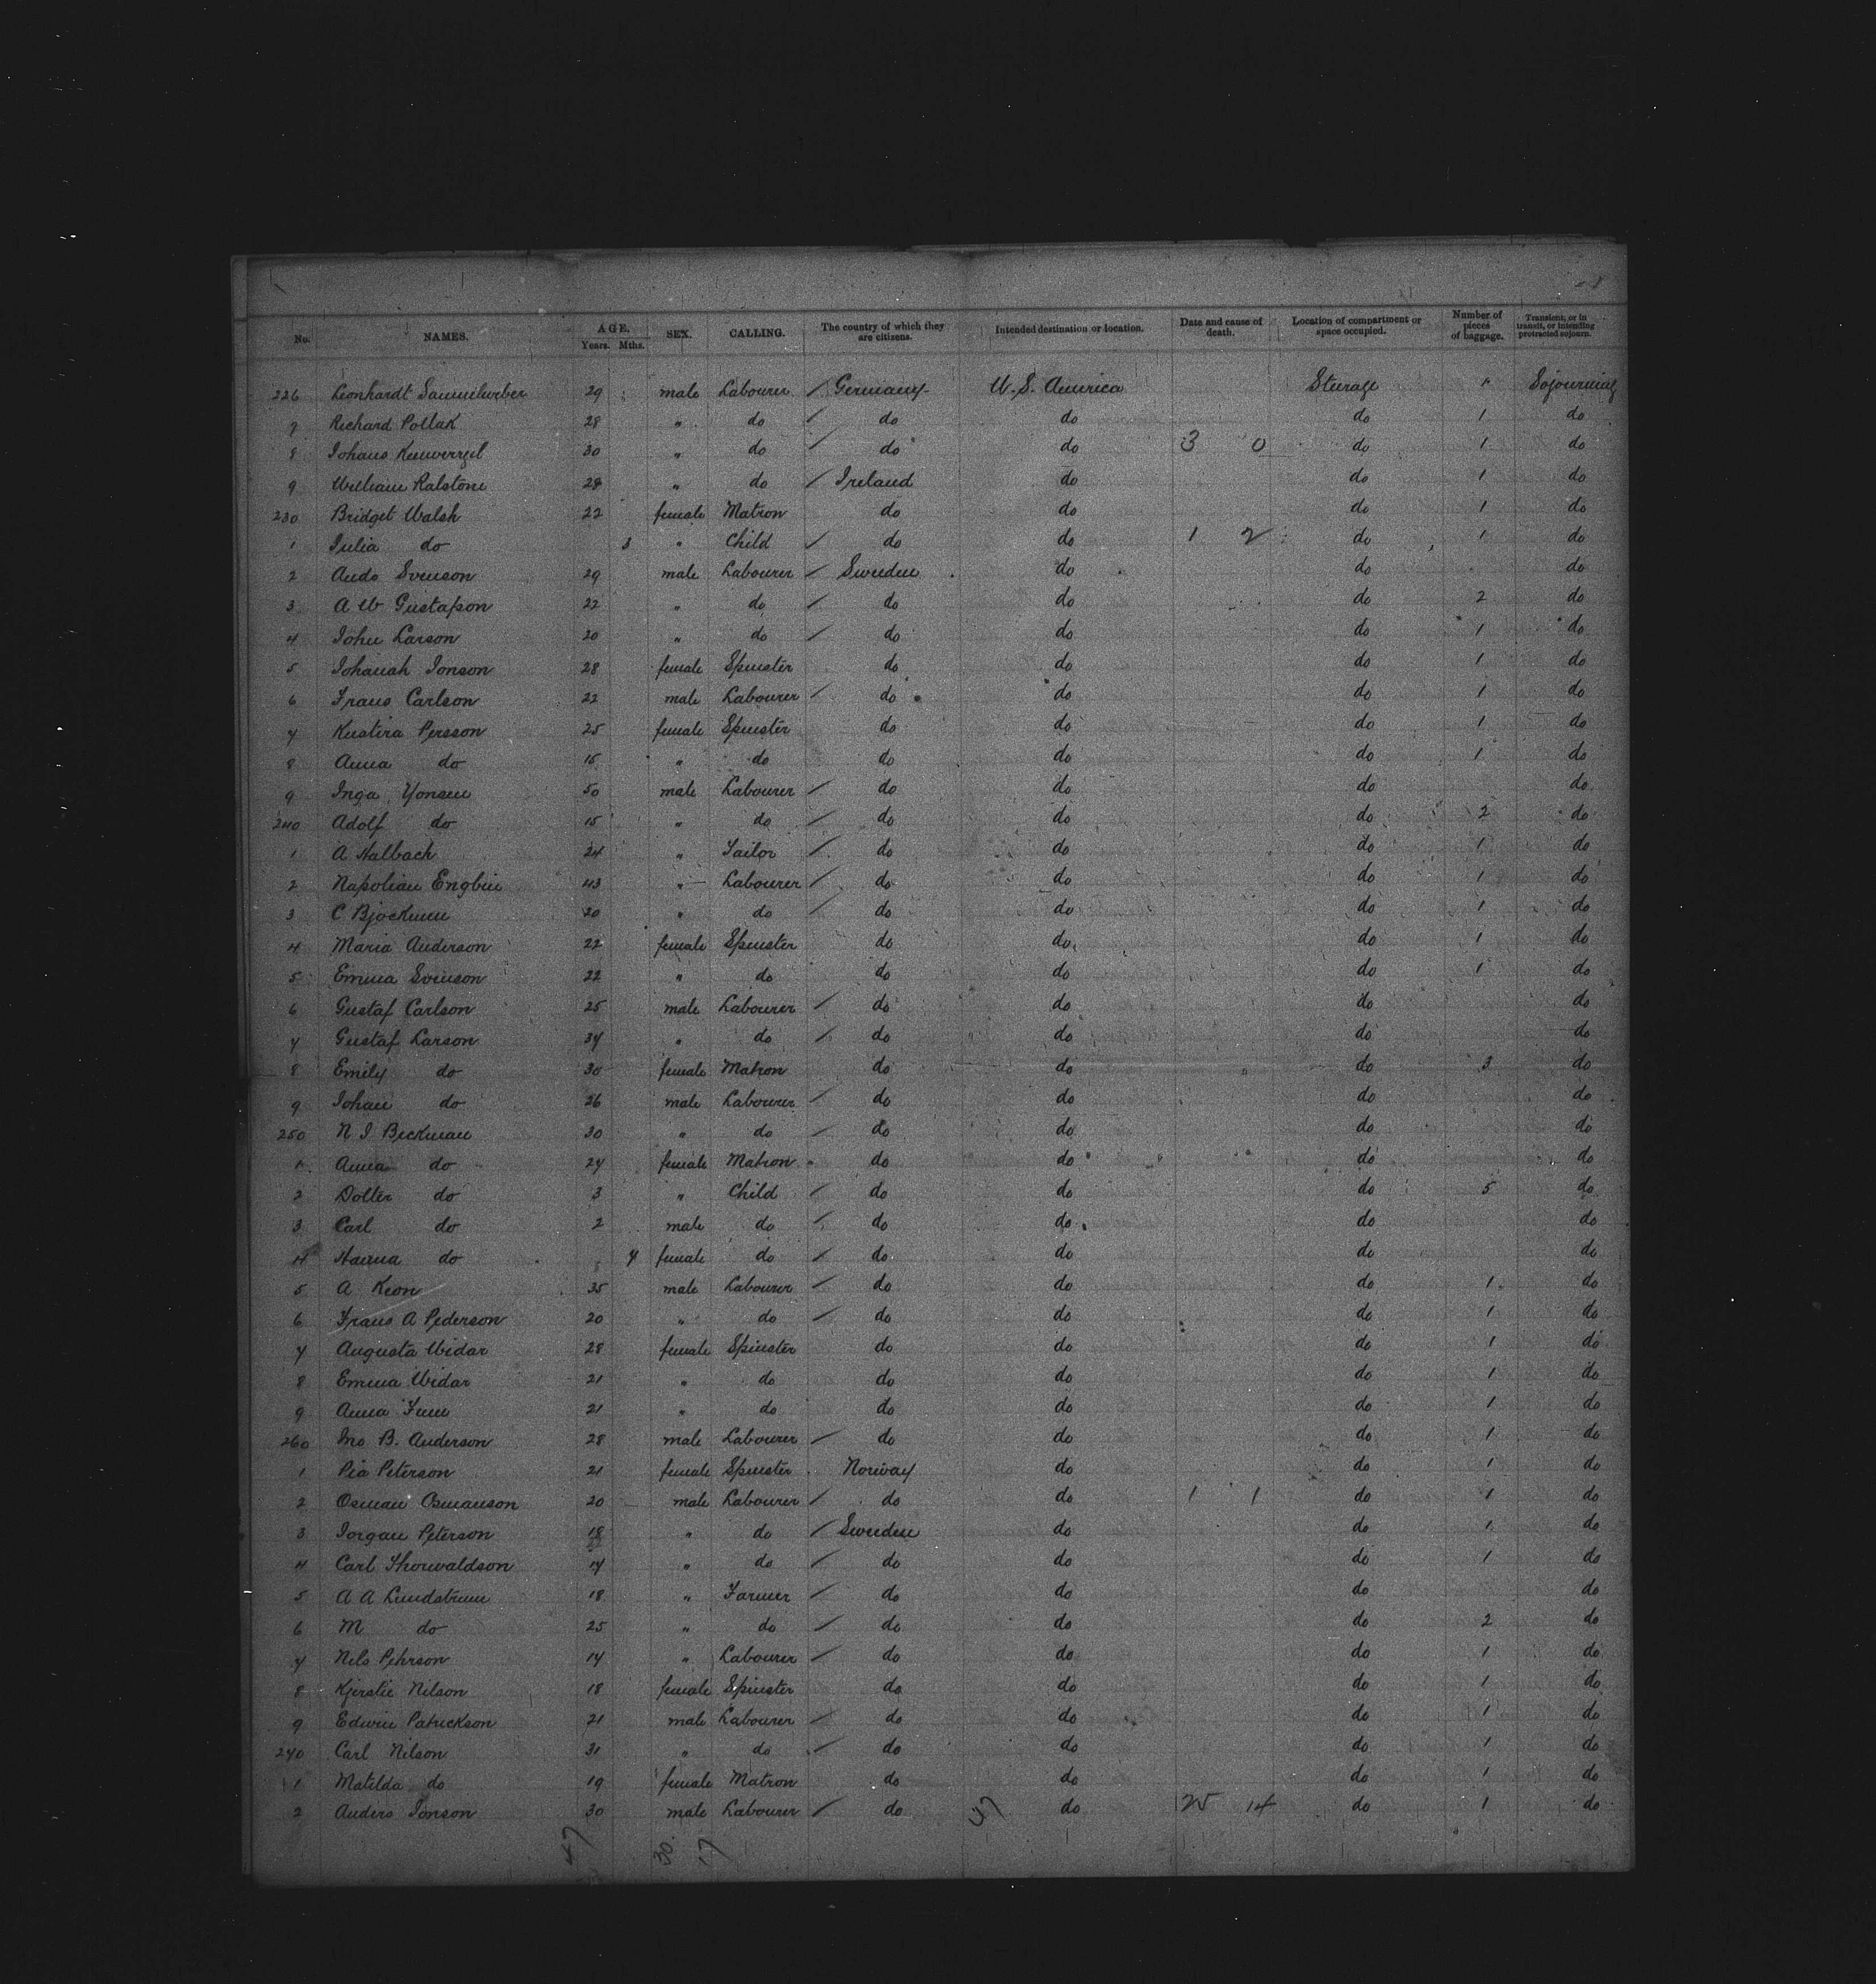 No. NAMES. AGE. Years. Mths. SEX. CALLING. The country of which they are citizens. Intended destination or location. Date and cause of death. Location of compartment or space occupied. Number of pieces of baggage. Transient, or in transit, or intending protracted sojourn.
226 Leonhardt 29 male Labourer / Germany U. S. America Steerage 1 Sojourning
7 Richard Pollak 28 " do / do do do 1 do
8 Johans 30 " do / do do 3 0 do 1 do
9 William Ralstone 28 " do / Ireland do do 1 do
230 Bridget Walsh 22 female Matron do do do 1 do
1 Julia do 3 " Child / do do 1 2 do 1 do
2 Ando Svenson 29 male Labourer / Sweden do do do
3 A W Gustafson 22 " do / do do do 2 do
4 John Larson 20 " do / do do do 1 do
5 Johanah Jonson 28 female Spinster do do do 1 do
6 Frans Carlson 22 male Labourer / do do do 1 do
7 Kustina Persson 25 female Spinster do do do 1 do
8 Anna do 15 " do do do do 1 do
9 Inga Yonsen 50 male Labourer / do do do do
240 Adolf do 15 " do / do do do 2 do
1 A Halbach 24 " Tailor / do do do 1 do
2 Napolian Engbin 43 " Labourer / do do do 1 do
3 C Bjockmen 20 " do / do do do 1 do
4 Maria Anderson 22 female Spinster do do do 1 do
5 Emma Svenson 22 " do do do do 1 do
6 Gustaf Carlson 25 male Labourer / do do do do
7 Gustaf Larson 37 " do / do do do do
8 Emily do 30 female Matron do do do 3 do
9 Johan do 26 male Labourer / do do do do
250 N J Beckman 30 " do / do do do do
1 Anna do 27 female Matron do do do do
2 Dotter do 3 " Child / do do do 5 do
3 Carl do 2 male do / do do do do
4 Hanna do 7 female do / do do do do
5 A Keon 35 male Labourer / do do do 1 do
6 Frans A Pederson 20 " do / do do do 1 do
7 Augusta Widar 28 female Spinster do do do 1 do
8 Emma Widar 21 " do do do do 1 do
9 Anna 21 " do do do do 1 do
260 Jno B. Anderson 28 male Labourer / do do do 1 do
1 Pia Peterson 21 female Spinster Norway do do 1 do
2 Osman Osmanson 20 male Labourer / do do 1 1 do 1 do
3 Jorgan Peterson 18 " do / Sweden do do 1 do
4 Carl Thorwaldson 17 " do / do do do 1 do
5 A A Lundstrum 18 " Farmer / do do do do
6 M do 25 " do / do do do 2 do
7 Nils Pehrson 17 " Labourer / do do do 1 do
8 Kjerstie Nilson 18 female Spinster do do do 1 do
9 Edwin Patrickson 21 male Labourer / do do do 1 do
270 Carl Nilson 31 " do / do do do 1 do
1 Matilda do 19 female Matron do do do 1 do
2 Anders Jonson 30 male Labourer / do 47 do 25 14 do 1 do
47 30 17